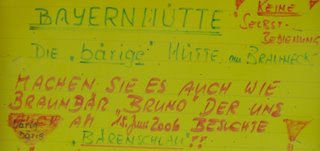 BAYERNHÜTTE
KEINE
SELBST-
BEDIENUNG
DIE „bärige" HÜTTE am BRAUNECK
MACHEN SIE ES AUCH WIE
BRAUNBÄR „BRUNO" DER UNS
AUCH AM 18. Juni 2006 BESUCHTE
„BÄRENSCHLAU"!!